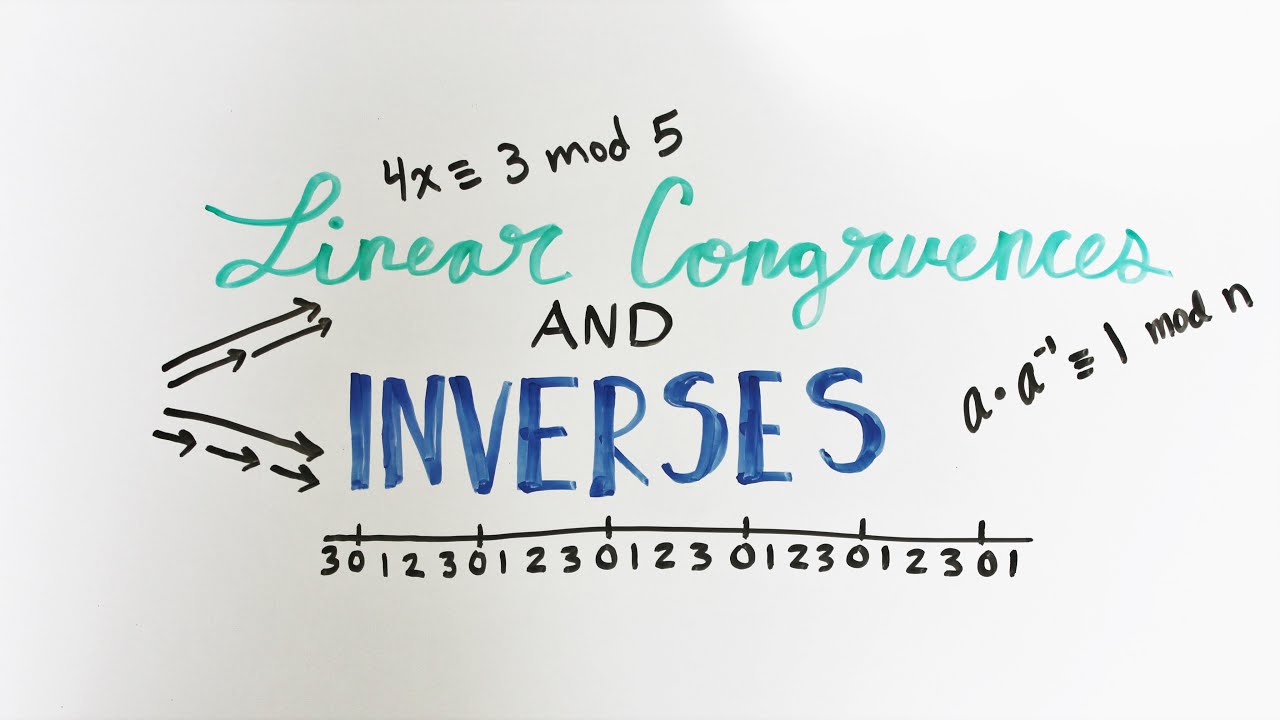 4x ≡ 3 mod 5
Linear Congruences
AND
INVERSES
a · a⁻¹ ≡ 1 mod n
3 0 1 2 3 0 1 2 3 0 1 2 3 0 1 2 3 0 1 2 3 0 1